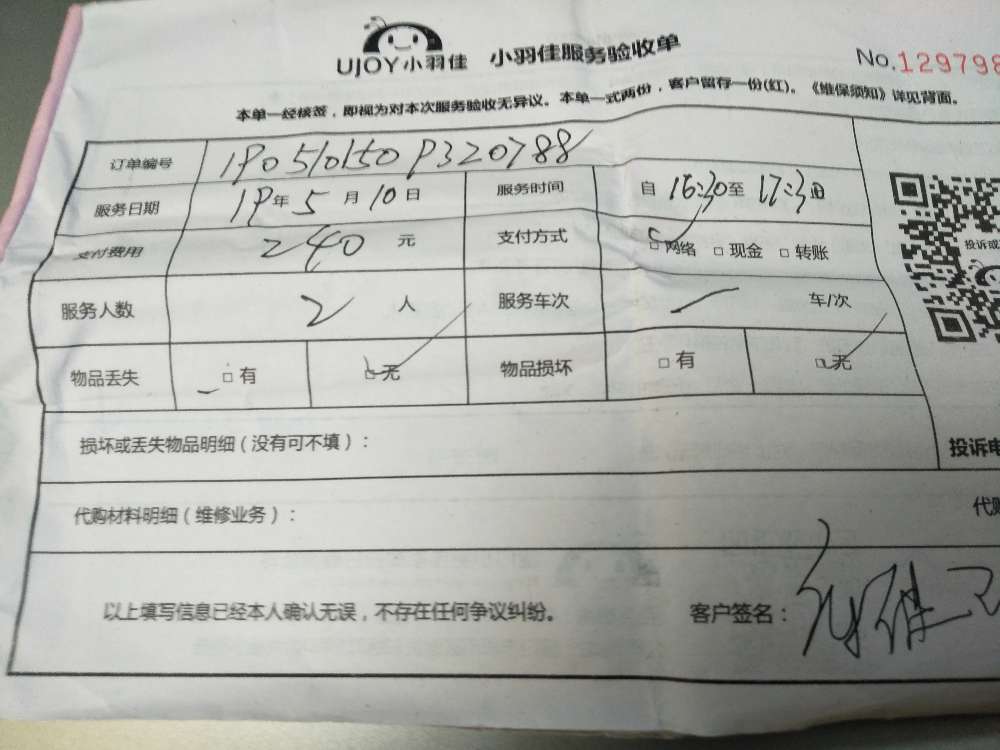 UJOY小羽佳 小羽佳服务验收单 No.129798
本单一经核签，即视为对本次服务验收无异议。本单一式两份，客户留存一份(红)。《维保须知》详见背面。
订单编号 190510150P320788
服务日期 19年5月10日 服务时间 自 16:30至 17:30
支付费用 240 元 支付方式 □网络 □现金 □转账
投诉或
服务人数 2 人 服务车次 车/次
物品丢失 □有 □无 物品损坏 □有 □无
损坏或丢失物品明细（没有可不填）：
投诉电
代购材料明细（维修业务）： 代购
以上填写信息已经本人确认无误，不存在任何争议纠纷。 客户签名：